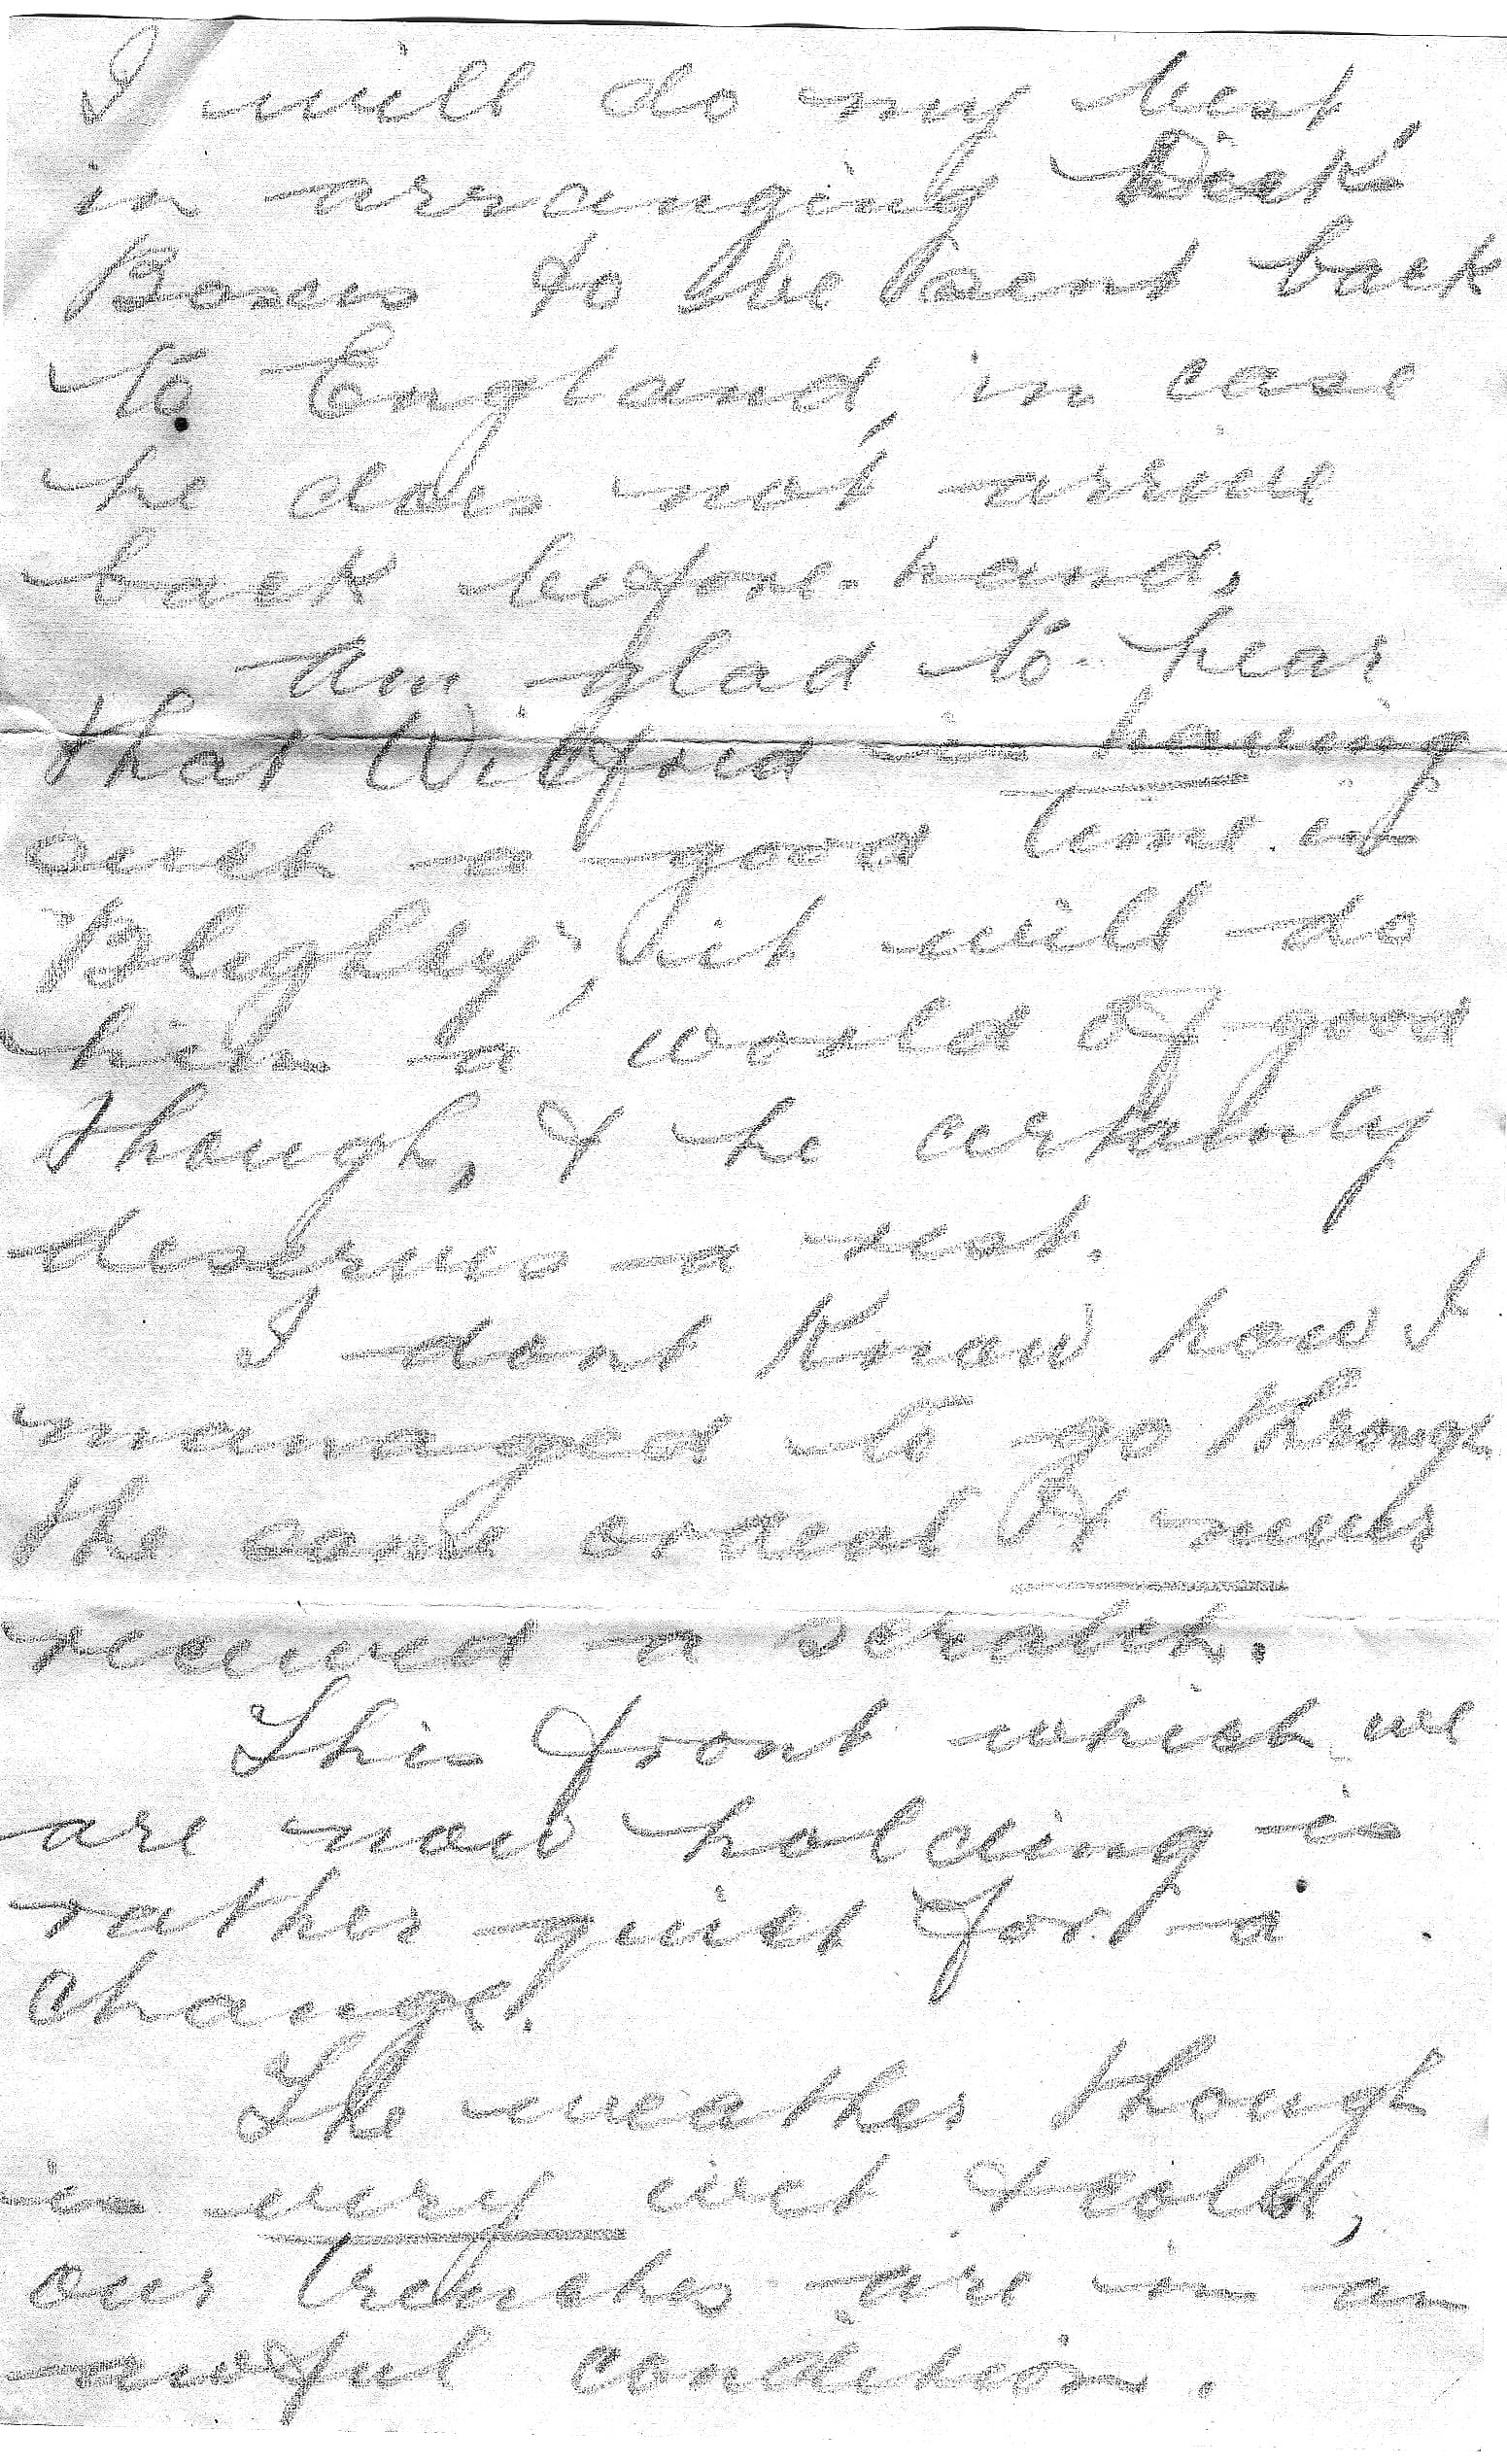 I will do my best,
in arranging Dick's
Boxes to be sent back
to England, in case
he does not arrive
back before-hand.
Am glad to hear
that Wilfred is having
such a good time in
"Blighty", it will do
him a world of good
though, & he certainly
deserves a rest.
I dont know how I
managed to go through
the same ordeal & never
received a scratch.
This front which we
are now holding is
rather quiet for a
change!
The weather though
is very wet & cold,
our trenches are in an
awful condition.